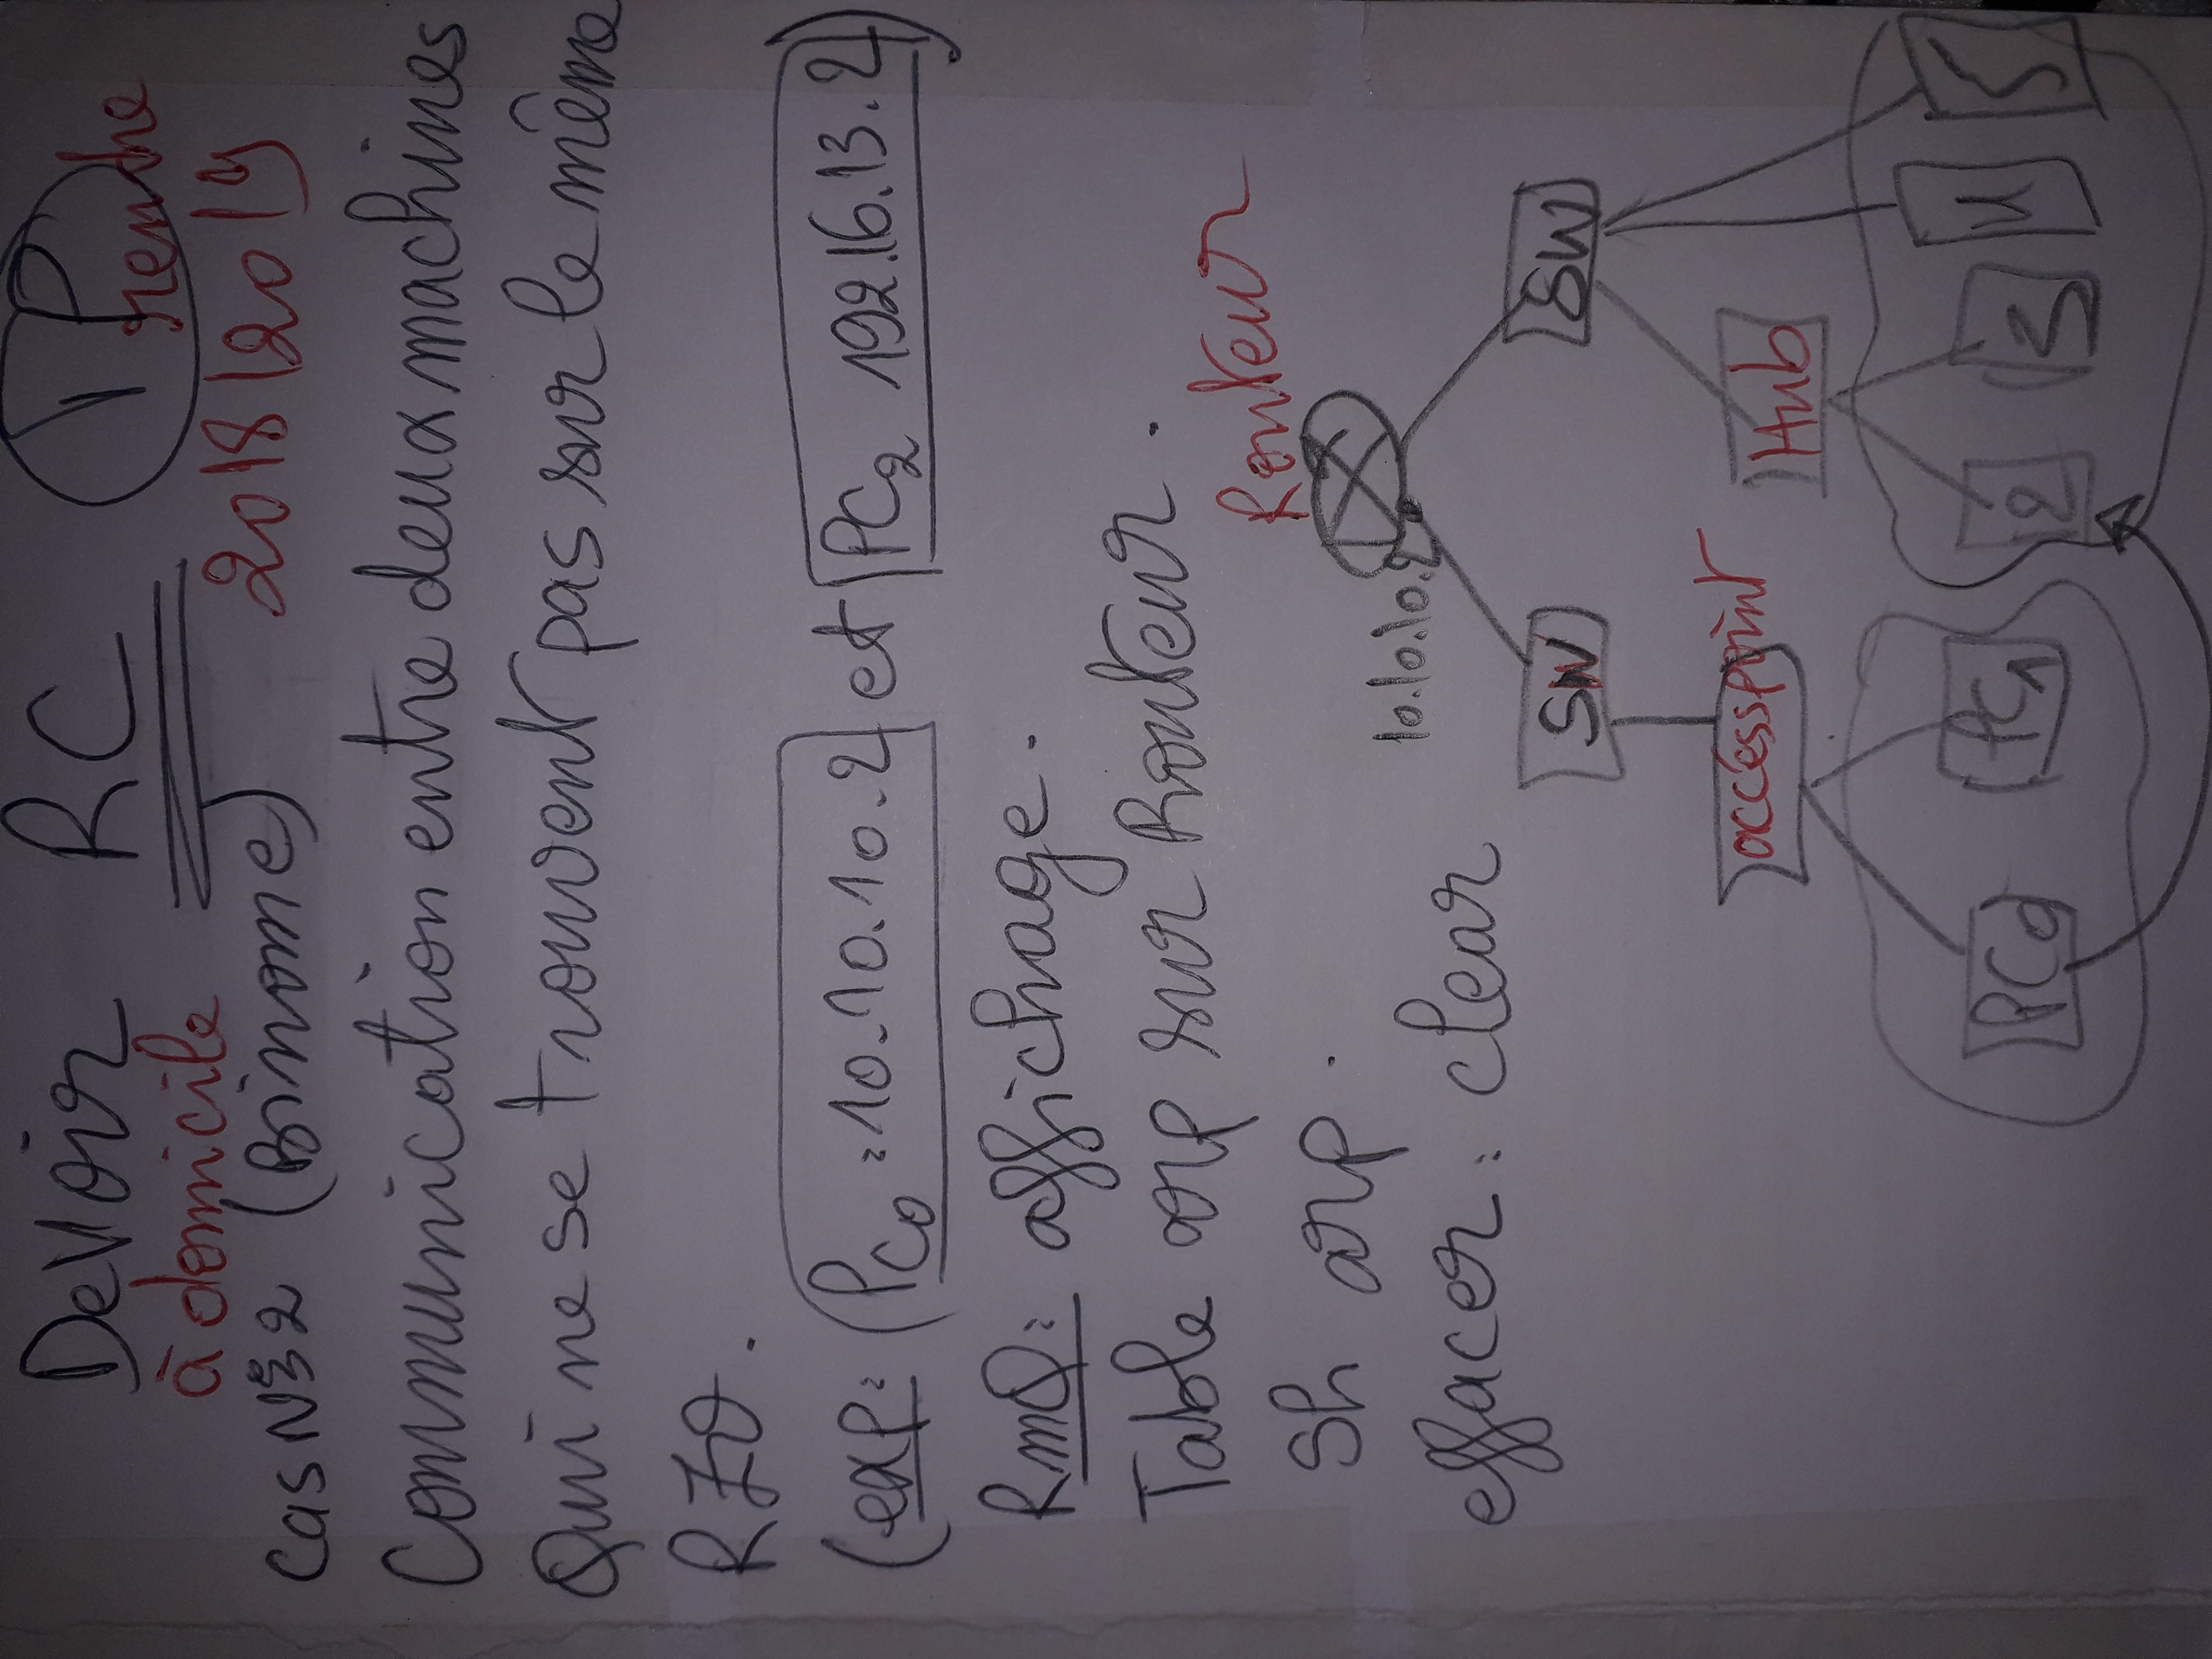 Devoir RC TP
à domicile 2018/2019 rendre
Cas N°2 (Binome)
Communication entre deux machines
Qui ne se trouvent pas sur le même
RZO.
(exp: (PC0 = 10.10.10.2 et PC2 192.16.13.2)
RmQ: affichage.
Table arp sur Routeur.
Sh arp.
effacer: clear
Routeur
10.10.10.
SW
SW
accesspoint
Hub
PC0
PC1
2
3
4
5